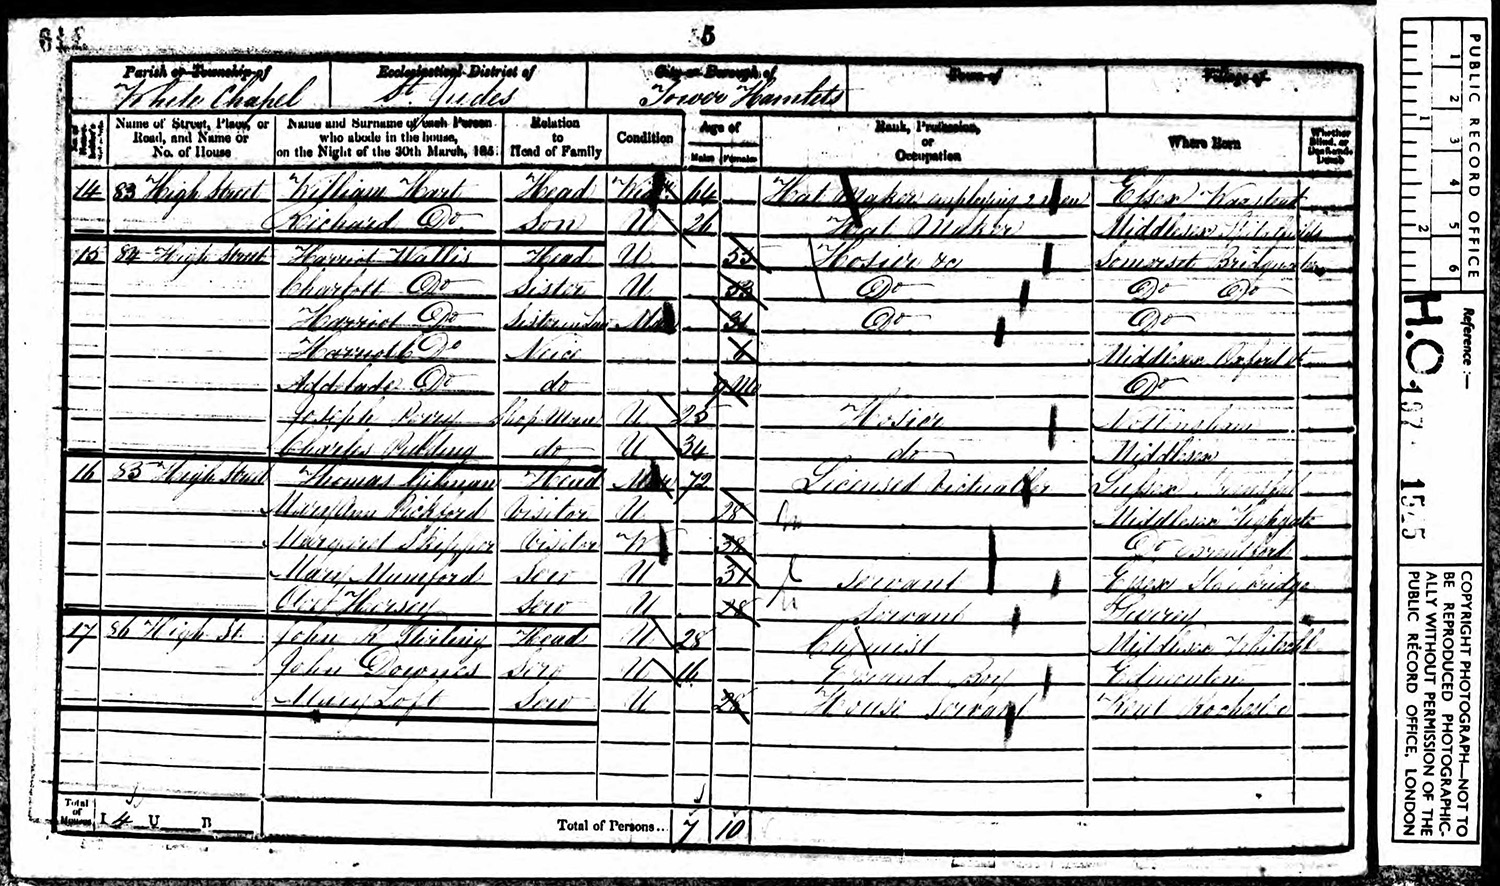 5
Parish or Township of Ecclesiastical District of City or Borough of Town of Village of
White Chapel St. Judes Tower Hamlets
Name of Street, Place, or Road, and Name or No. of House
Name and Surname of each Person who abode in the house, on the Night of the 30th March, 185
Relation to Head of Family
Condition
Age of
Males Females
Rank, Profession, or Occupation
Where Born
Whether Blind, or Deaf and Dumb
14 83 High Street William Hart Head 64 Hat Maker employing 2 men Essex
Richard Do Son U 26 Hat Maker Middlesex
15 84 High Street Harriot Wallis Head U 55 Hosier &c Somerset Bridgwater
Charlott Do Sister U 53 Do Do Do
Harriot Do Sister in Law Mar 31 Do Do
Harriott Do Neice 6 Middlesex Oxford St
Addelade Do do 9 Mo Do
Joseph Shop Man U 25 Hosier Nottingham
Charles do U 34 do Middlesex
16 85 High Street Thomas Head Mar 72 Licensed Victualler Sussex
Mary Ann Pickford Visitor U 28 Middlesex Highgate
Margaret Skipper Visitor W 38 Do Brentford
Mary Mumford Serv U 37 Servant Essex
Hersey Serv U 28 Servant Surrey
17 86 High St. John R Stirling Head U 28 Chymist Middlesex
John Downes Serv U 16 Errand Boy Edmonton
Mary Loft Serv U 28 House Servant Kent Rochester
Total of Houses I 4 U B Total of Persons... 7 10
PUBLIC RECORD OFFICE
1 2 3 4 5 6
1 2
Reference:—
H.O. 107
1545
COPYRIGHT PHOTOGRAPH—NOT TO
BE REPRODUCED PHOTOGRAPHIC-
ALLY WITHOUT PERMISSION OF THE
PUBLIC RECORD OFFICE, LONDON